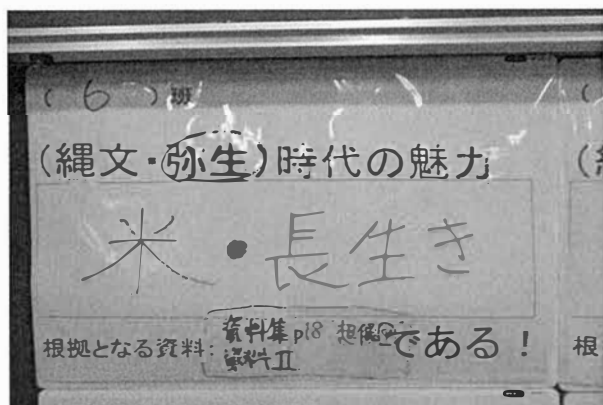 ( 6 ) 班
(縄文・弥生)時代の魅力
米・長生き
根拠となる資料: 資料集p18 想像図 である!
資料Ⅱ
根